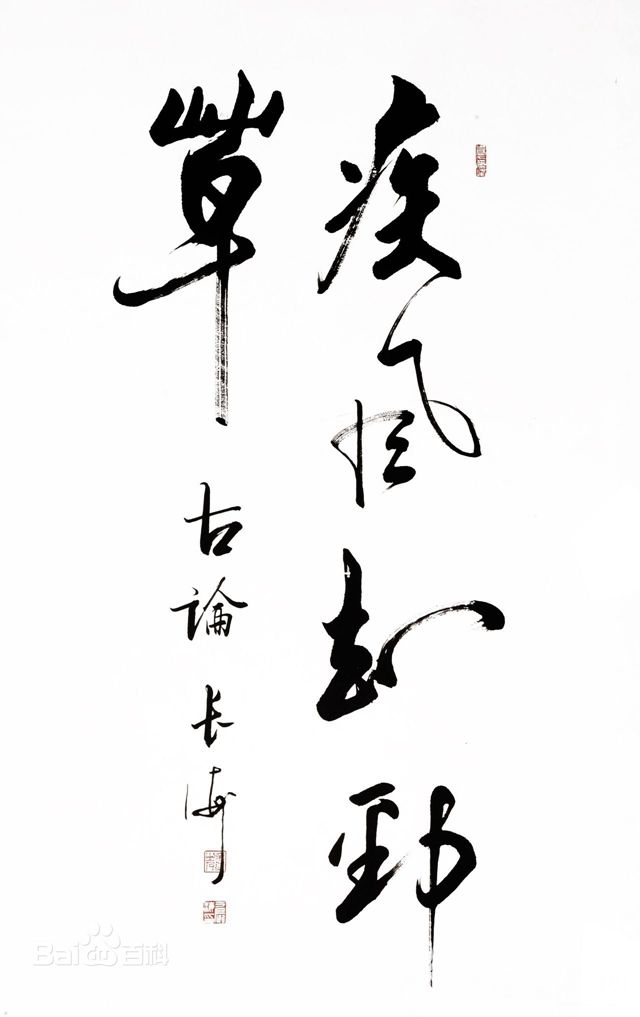 疾风知劲
草
古論 长海
Baidu百科